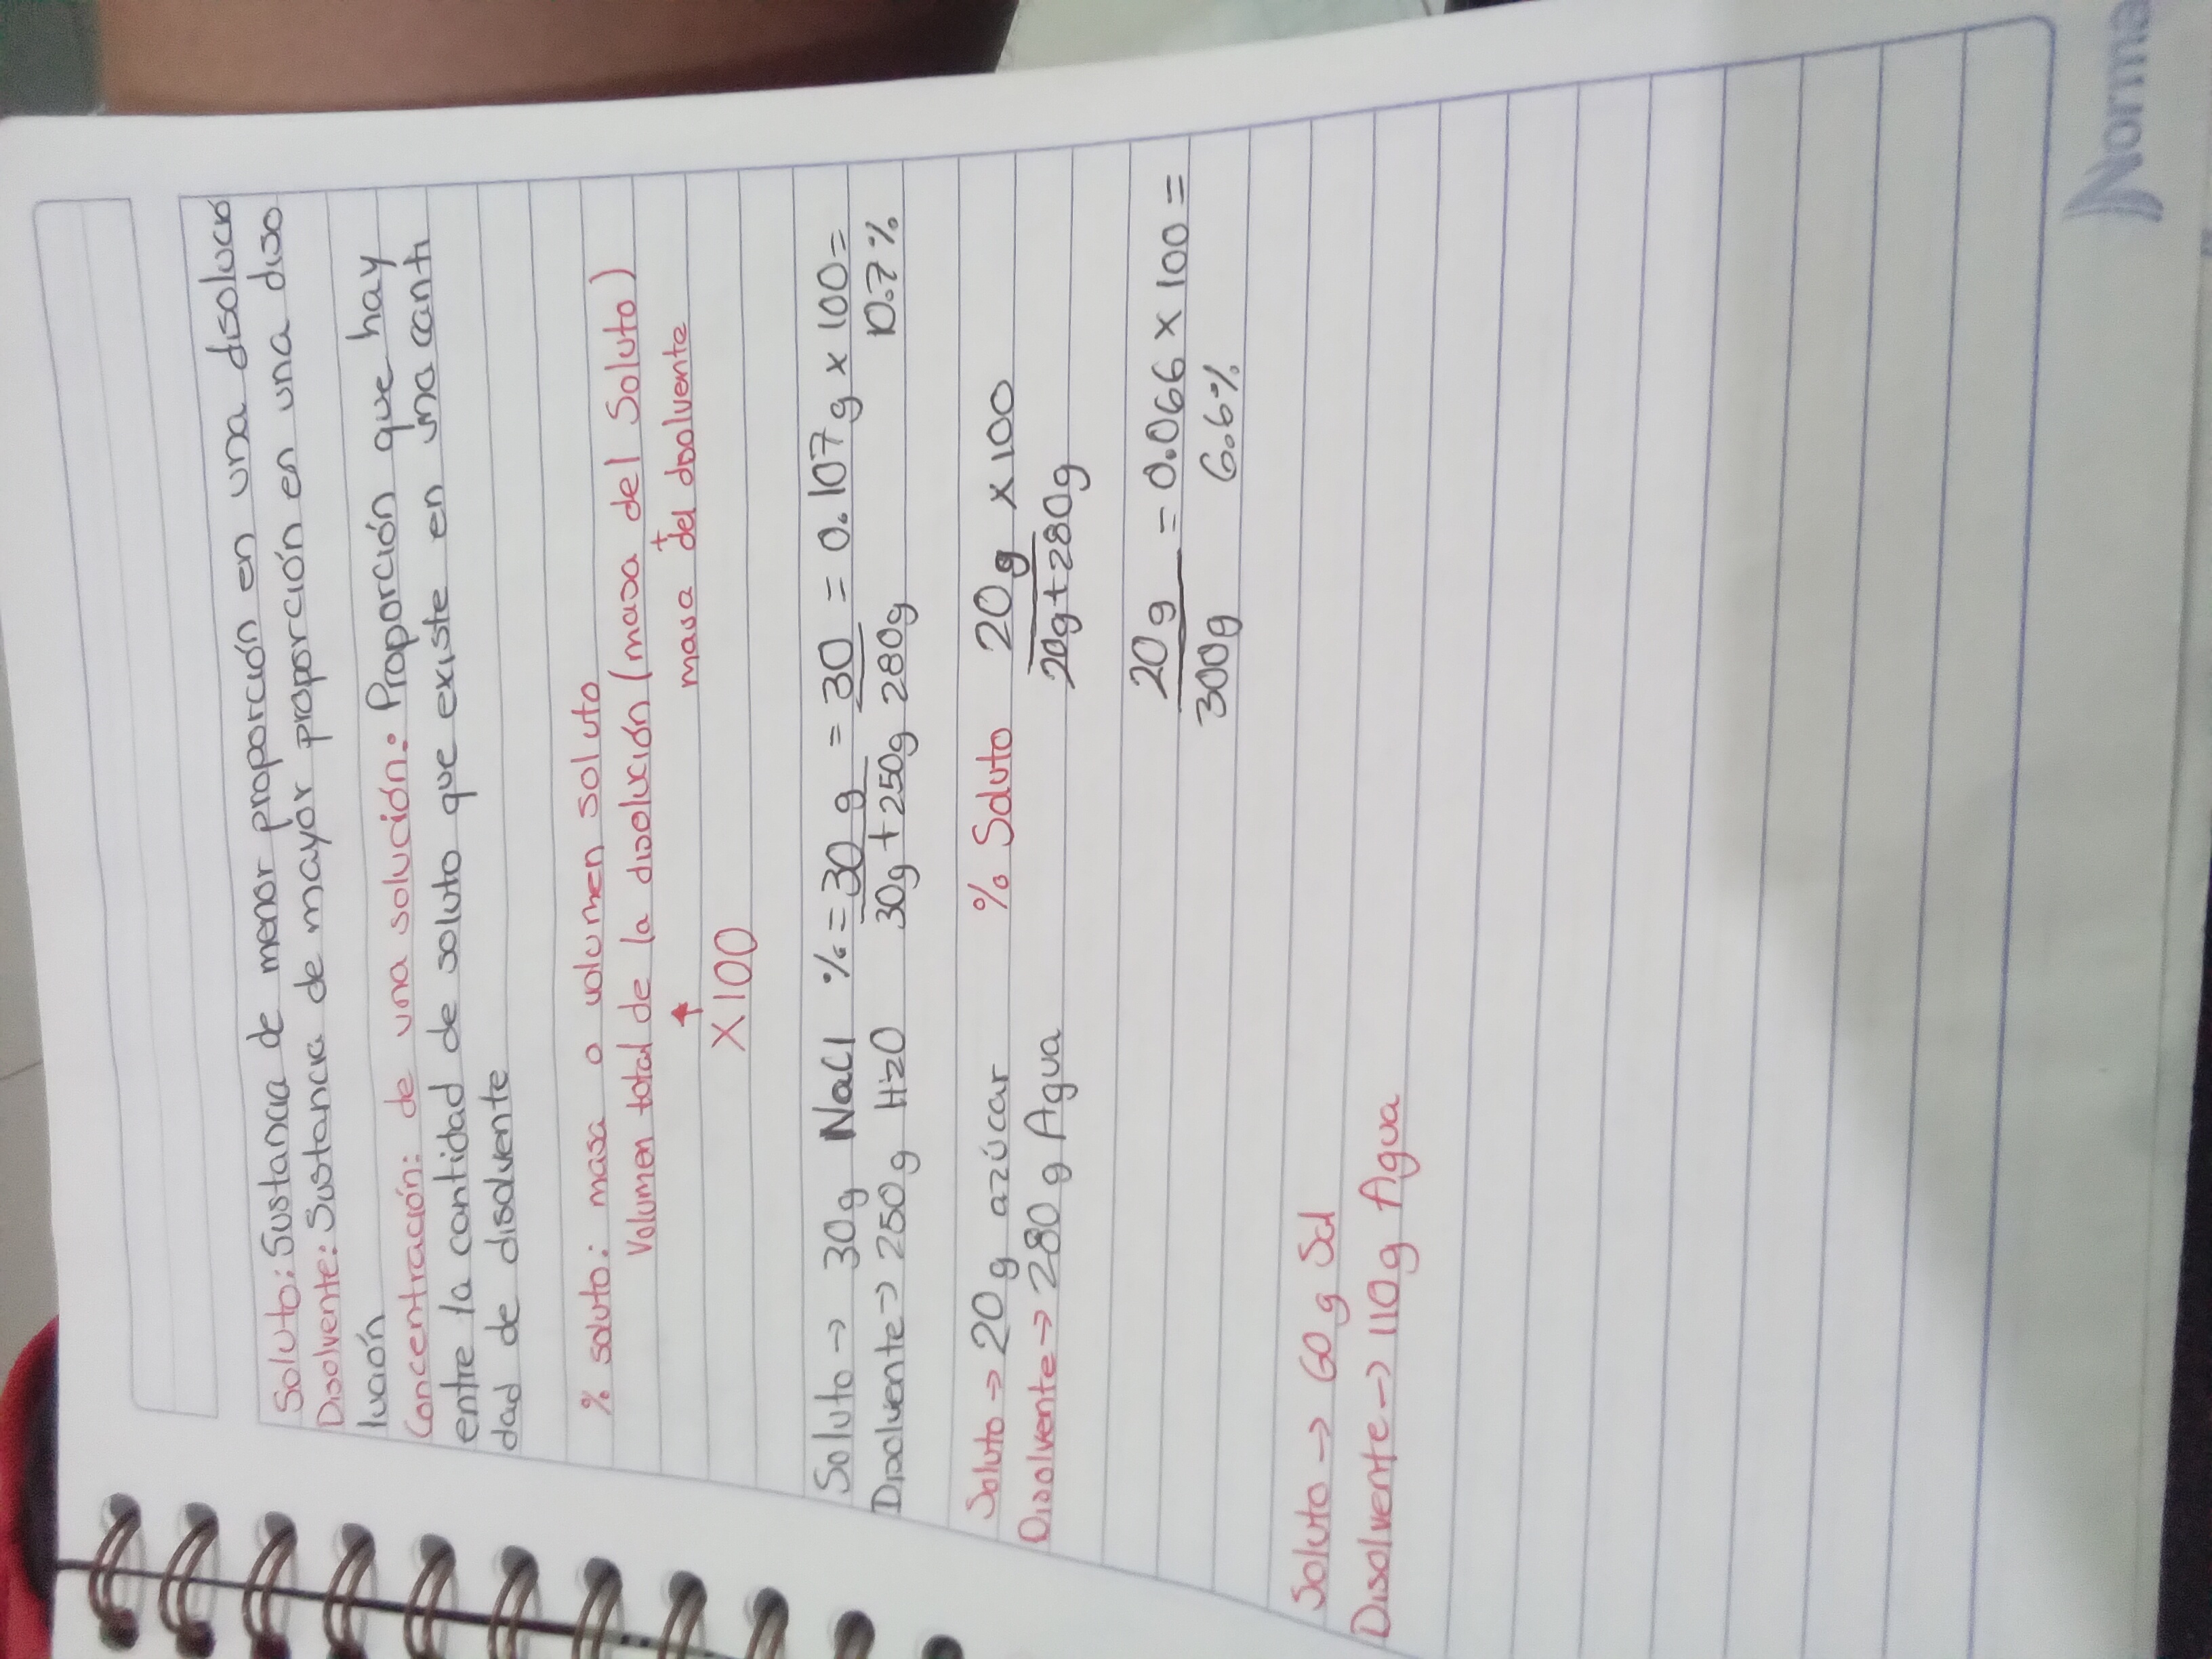 Soluto: Sustancia de menor proporción en una disolució
Disolvente: Sustancia de mayor proporción en una diso
lución
Concentración: de una solución. Proporción que hay
entre la cantidad de soluto que existe en una canti
dad de disolvente
% soluto: masa o volumen soluto
Volumen total de la disolución (masa del Soluto)
+
masa del disolvente
X100
Soluto → 30g NaCl % = 30 g = 30 = 0.107g x 100 =
Disolvente → 250g H2O 30g + 250g 280g 10.7%
Soluto → 20g azúcar % Soluto 20g x 100
Disolvente → 280g Agua 20g + 280g
20g = 0.066 x 100 =
300g 6.6%
Soluto → 60g Sal
Disolvente → 110g Agua
Norma